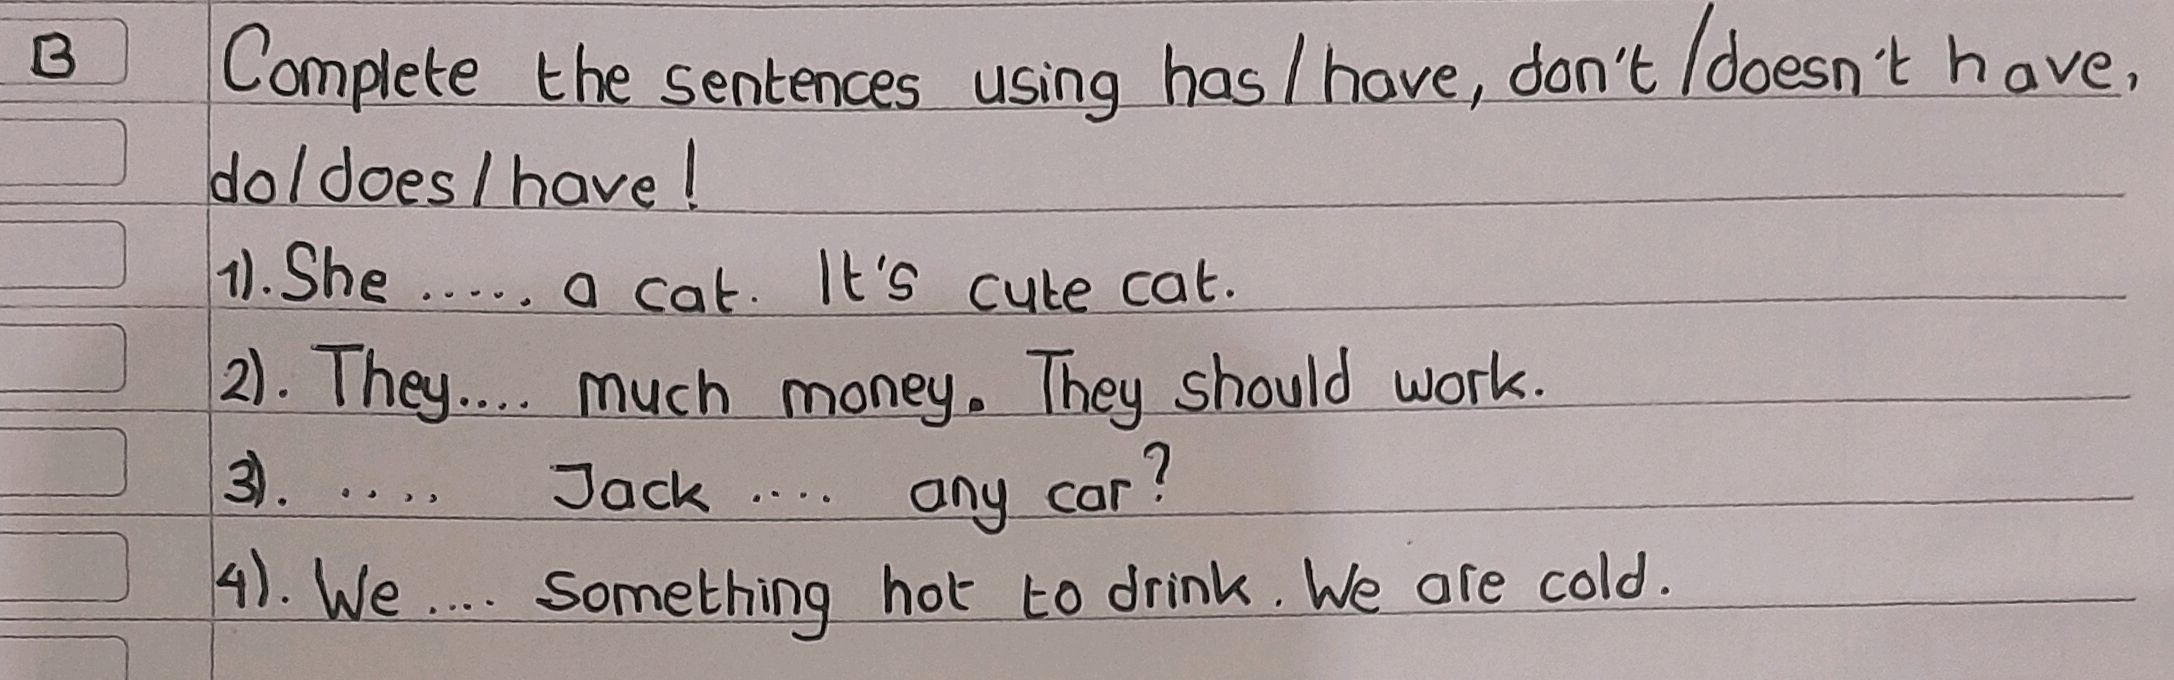 B Complete the sentences using has/have, don't/doesn't have,
do/does/have!
1). She ..... a cat. It's cute cat.
2). They.... much money. They should work.
3). .... Jack .... any car?
4). We .... something hot to drink. We are cold.